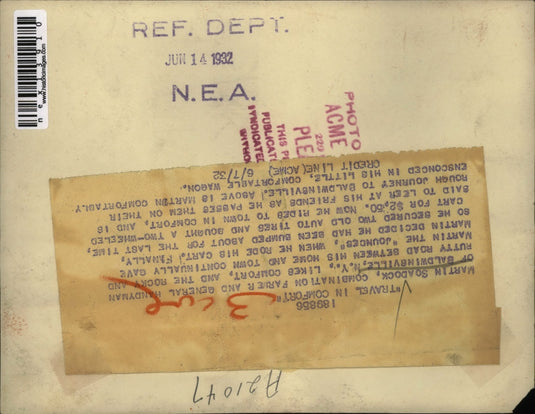 REF. DEPT.
JUN 14 1932
N.E.A.
nex13910
PHOTO
ACME
220
PLE
THIS P
PUBLICAT
SYNDICATE
WITHO
189856
"TRAVEL IN COMFORT"
3 col
MARTIN SOADOCK, COMBINATION FARMER AND GENERAL HANDYMAN
OF BALDWINSVILLE, N.Y., LIKES COMFORT, AND THE ROCKY AND
RUTTY ROAD BETWEEN HIS HOME AND TOWN CONTINUALLY GAVE
MARTIN THE "JOUNCES" WHEN HE RODE HIS CART. FINALLY
MARTIN DECIDED HE HAD BEEN BUMPED ABOUT FOR THE LAST TIME,
SO HE SECURED TWO OLD AUTO TIRES AND BOUGHT A TWO-WHEELED
CART FOR $2.50. NOW HE RIDES TO TOWN IN COMFORT, AND IS
SAID TO LEER AT HIS FRIENDS AS HE PASSES THEM ON THEIR
ROUGH JOURNEY TO BALDWINSVILLE. ABOVE IS MARTIN COMFORTABLY
ENSCONCED IN HIS LITTLE, COMFORTABLE WAGON.
CREDIT LINE (ACME) 6/7/32
A21047